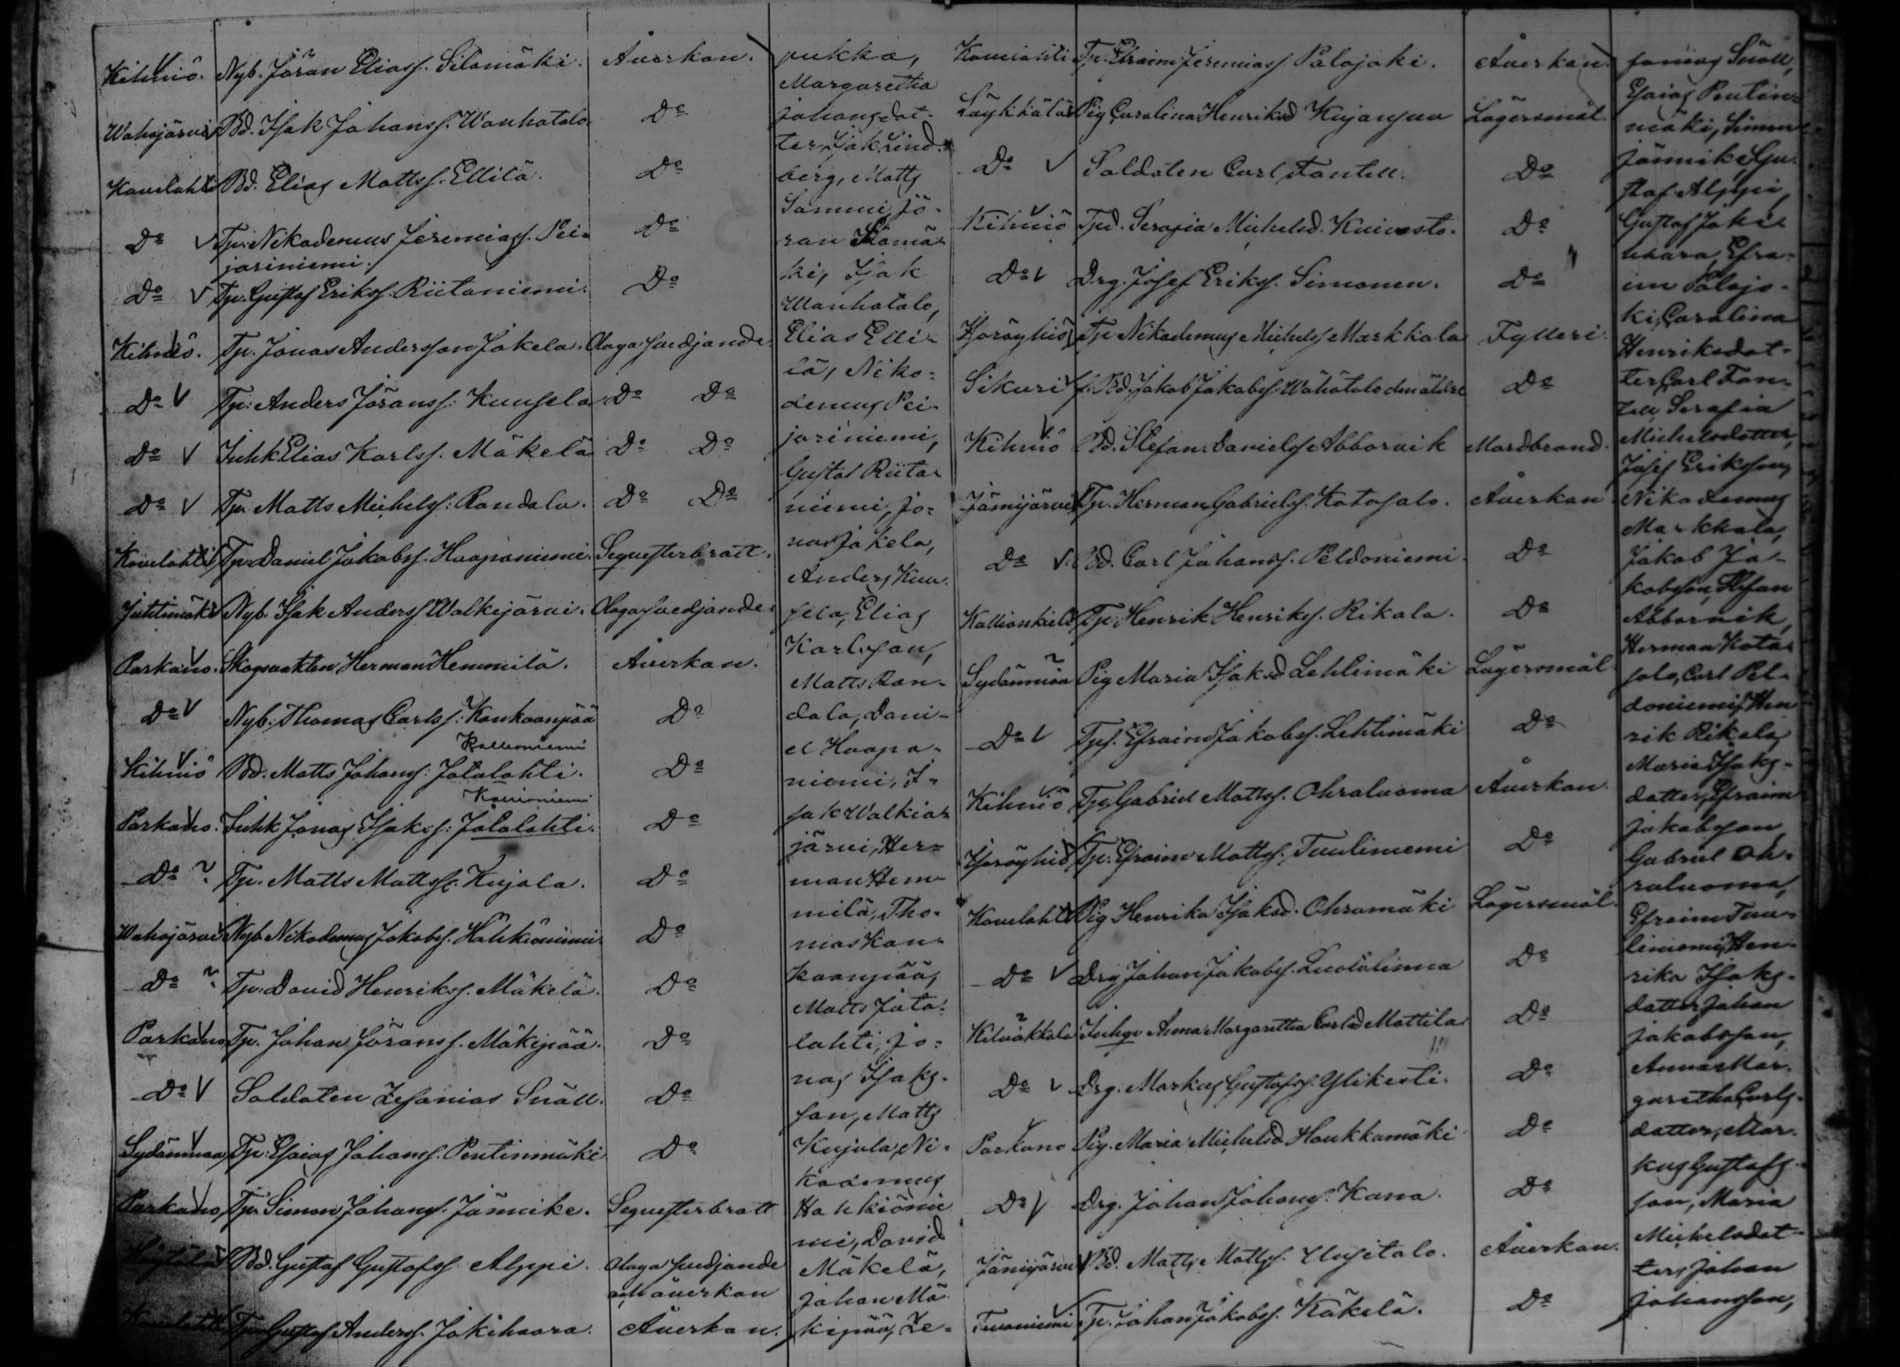 Kihniö. Nyb. Jöran Eliass. Silomäki. Åverkan.
Wahojärvi Bd. Isak Johanss. Wanhatalo D:o
Kovelahti Bd. Elias Mattss. Ellilä. D:o
D:o Tp. Nikodemus Jeremiass. Pei-
joriniemi. D:o
D:o Tp. Gustaf Erikss. Riitaniemi. D:o
Kihniö. Tp. Jonas Andersson Jokela. Olaga svedjande
D:o Tp. Anders Jöranss. Kuusela D:o D:o
D:o Inhk Elias Karlss. Mäkelä D:o D:o
D:o Tp. Matts Michelss. Randala. D:o D:o
Kovelahti Tp. Daniel Jakobss. Haapaniemi Sequesterbrott.
Tp. Nyb. Isak Anderss Walkijärvi. Olaga svedjande
Parkano. Skogvakten Herman Hemmilä. Åverkan.
D:o Nyb. Thomas Carlss. Kankaanpää D:o
Kallioniemi
Kihniö Bd. Matts Johanss. Jatalahti. D:o
Parkano. Inhk Jonas Isakss. Jatalahti. D:o
D:o Tp. Matts Mattss. Kujala. D:o
Wahojärvi Nyb Nikodemus Jakobss. Hahkiöniemi D:o
D:o Tp. David Henrikss. Mäkelä. D:o
Parkano Tp. Johan Jöranss. Mäkipää. D:o
D:o Soldaten Zefanias Snäll. D:o
Sydänmaa Tp. Esaias Johanss. Pentinmäki D:o
Parkano Tp. Simon Johanss. Jännike. Sequesterbrott
Bd. Gustaf Gustafss Alppi. Olaga svedjande
och åverkan
Tp. Gustaf Anderss. Jokihaara. Åverkan.
pukka,
Margaretha
Johansdot-
ter, Isak Lind-
berg, Matts
Sammi, Jö-
ran Silomä-
ki, Isak
Wanhatalo,
Elias Elli-
lä, Niko-
demus Pei-
joriniemi,
Gustaf Riita-
niemi, Jo-
nas Jokela,
Anders Kuu-
sela, Elias
Karlsson,
Matts Ran-
dala, Dani-
el Haapa-
niemi, I-
sak Walkia-
järvi, Her-
man Hem-
milä, Tho-
mas Kan-
kaanpää,
Matts Jata-
lahti, Jo-
nas Isaks-
son, Matts
Kujala, Ni-
kodemus
Hahkiönie
mi, David
Mäkelä,
Johan Mä-
kipää, Ze-
Tp. Efraim Jeremiass Palojoki. Åverkan
Pig Carolina Henriksd Kujanpää Lägersmål.
D:o Soldaten Carl Fantell. D:o
Kihniö Tpd. Serafia Michelsd. Kuivasto. D:o
D:o Drg. Josef Erikss. Simonen. D:o
Tp Nikodemus Michelss Markkala Fylleri.
Sikuri f. Bd. Jakob Jakobss. Wähätalo den äldre D:o
Kihniö Bd. Stefan Danielss Abborvik Mordbrand.
Jämijärvi Tp. Herman Gabrielss. Kotosalo. Åverkan
D:o Bd. Carl Johanss. Peldoniemi. D:o
Tp. Henrik Henrikss. Rikala. D:o
Sydänmaa Pig Maria Isaksd Lehtimäki Lägersmål
D:o Tps. Efraim Jakobss. Lehtimäki D:o
Kihniö Tp Gabriel Mattss. Ohraluoma Åverkan.
Tp. Efraim Mattss. Tuuliniemi D:o
Kovelahti Pig Henrika Isaksd. Ohramäki Lägersmål.
D:o Drg Johan Jakobss. Luotolinna D:o
Kilvakkala Inhqv Anna Margaretha Carlsd Mattila D:o
D:o Drg. Markus Gustafss. Ylikesti. D:o
Parkano Pig. Maria Michelsd. Haukkamäki D:o
D:o Drg. Johan Johanss. Kana. D:o
Jämijärvi Bd. Matts Mattss. Uusitalo. Åverkan.
Tp. Johan Jakobss. Käkelä. D:o
fanias Snäll,
Esaias Pentin-
mäki, Simon
Jännike, Gu-
staf Alppi,
Gustaf Joki-
haara, Efra-
im Palojo-
ki, Carolina
Henriksdot-
ter, Carl Fan-
tell, Serafia
Michelsdotter,
Josef Eriksson,
Nikodemus
Markkala,
Jakob Ja-
kobsson, Stefan
Abborvik,
Herman Koto-
salo, Carl Pel-
doniemi, Hen
rik Rikala,
Maria Isaks-
dotter, Efraim
Jakobsson,
Gabriel Oh-
raluoma,
Efraim Tuu-
liniemi, Hen-
rika Isaks-
dotter, Johan
Jakobsson,
Anna Mar-
garetha Carls-
dotter, Mar-
kus Gustafs-
son, Maria
Michelsdot-
ter, Johan
Johansson,